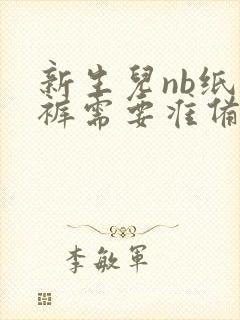 新生兒nb纸
裤需要准备
李敏軍